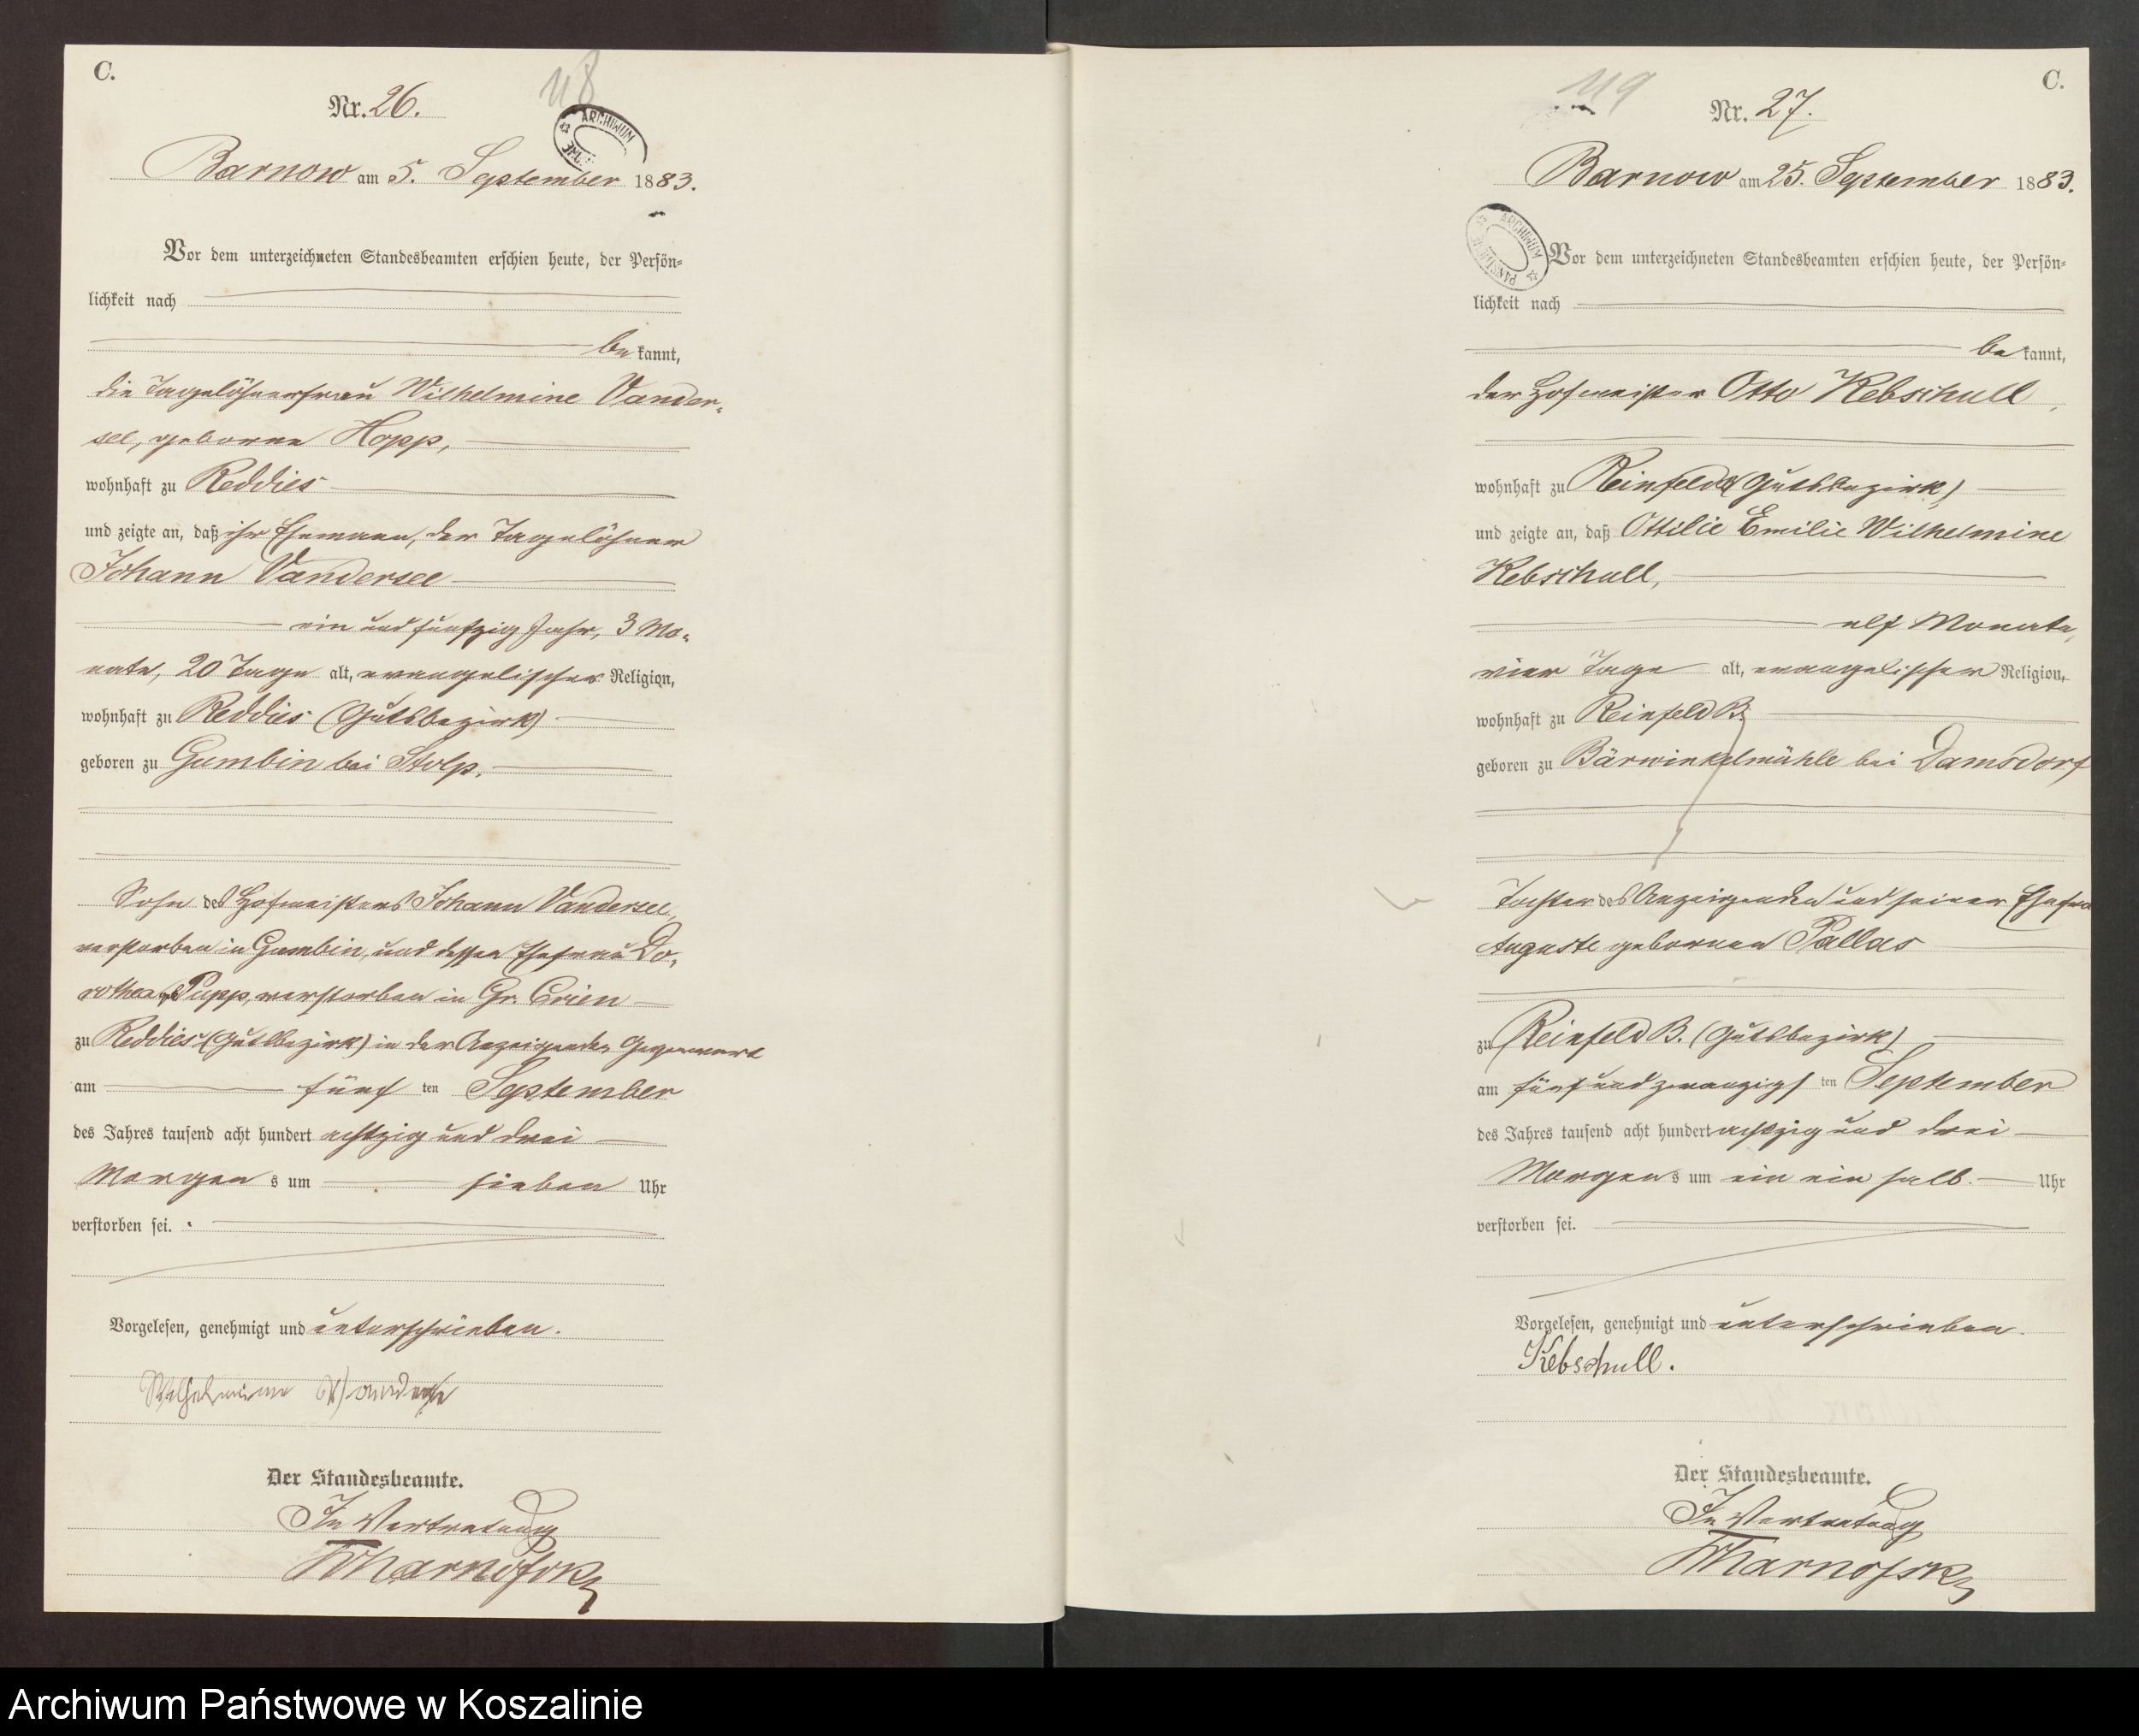 C.
118
Nr. 26.
ARCHIWUM
Barnow am 5. September 1883.
Vor dem unterzeichneten Standesbeamten erschien heute, der Persön-
lichkeit nach
be kannt,
die Tagelöhnerfrau Wilhelmine Vander-
see, geborne Hopp,
wohnhaft zu Reddies
und zeigte an, daß ihr Ehemann, der Tagelöhner
Johann Vandersee
ein und fünfzig Jahr, 3 Mo-
nate, 20 Tage alt, evangelischer Religion,
wohnhaft zu Reddies (Gutsbezirk)
geboren zu Gumbin bei Stolp,
Sohn des Hofmeisters Johann Vandersee,
verstorben in Gumbin, und dessen Ehefrau Do-
rothea Pupp, verstorben in Gr. Crien
zu Reddies (Gutsbezirk) in der Anzeigenden Gegenwart
am fünf ten September
des Jahres tausend acht hundert achtzig und drei
Morgen s um sieben Uhr
verstorben sei.
Vorgelesen, genehmigt und unterschrieben.
Wilhelmine Vanderse
Der Standesbeamte.
In Vertretung
C.
119
Nr. 27.
Barnow am 25. September 1883.
ARCHIWUM
Vor dem unterzeichneten Standesbeamten erschien heute, der Persön-
lichkeit nach
be kannt,
der Hofmeister Otto Kebschull,
wohnhaft zu Reinfeld (Gutsbezirk)
und zeigte an, daß Ottilie Emilie Wilhelmine
Kebschull,
elf Monate,
vier Tage alt, evangelischer Religion,
wohnhaft zu Reinfeld B.
geboren zu Bärwinkelmühle bei Damsdorf
Tochter des Anzeigenden und seiner Ehefrau
Auguste gebornen Pallas
zu Reinfeld B. (Gutsbezirk)
am fünf und zwanzigs ten September
des Jahres tausend acht hundert achtzig und drei
Morgen s um ein ein halb Uhr
verstorben sei.
Vorgelesen, genehmigt und unterschrieben.
Kebschull.
Der Standesbeamte.
In Vertretung
Archiwum Państwowe w Koszalinie